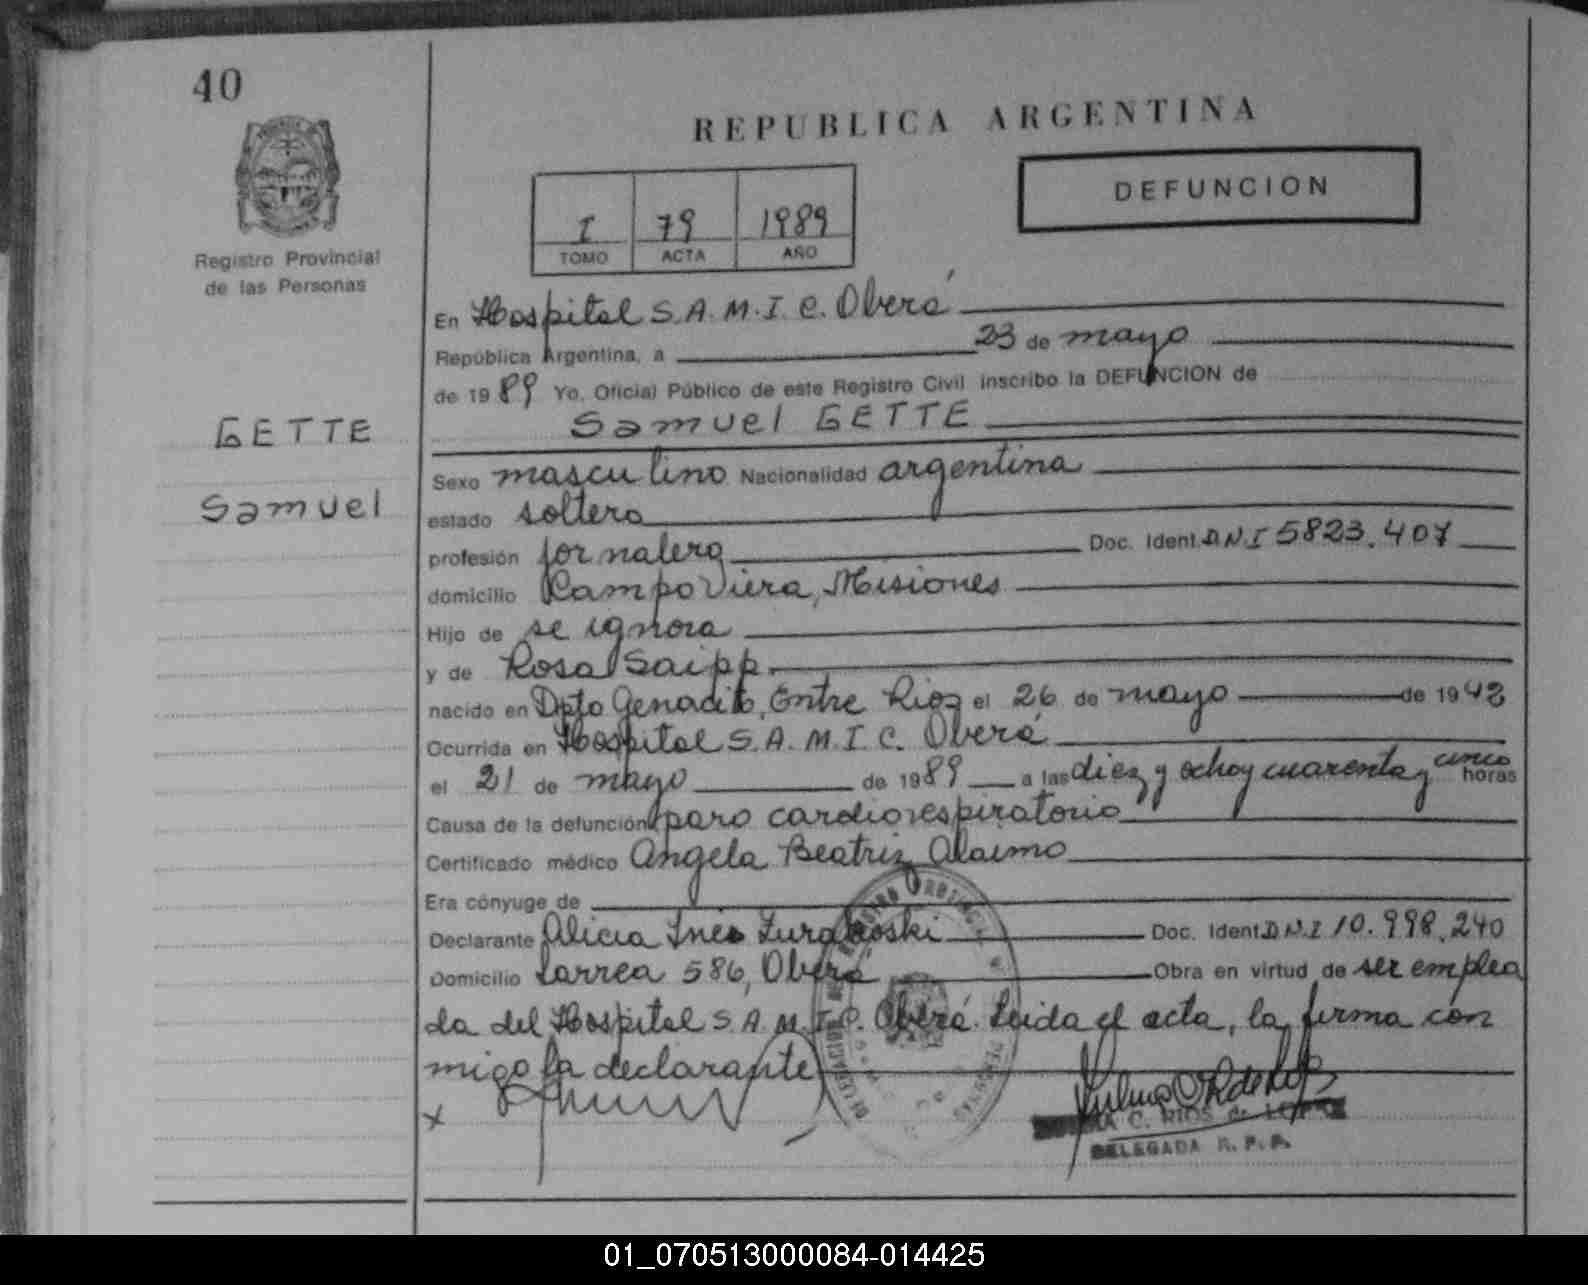 40
REPUBLICA ARGENTINA
DEFUNCION
I 79 1989
TOMO ACTA AÑO
Registro Provincial
de las Personas
En Hospital S.A.M.I.C. Oberá
República Argentina, a 23 de mayo
de 1989 Yo, Oficial Público de este Registro Civil inscribo la DEFUNCION de
GETTE
Samuel GETTE
Samuel
Sexo masculino Nacionalidad argentina
estado soltero
profesión jornalero Doc. Ident. DNI 5823.407
domicilio Campo Viera, Misiones
Hijo de se ignora
y de Rosa Saipp
nacido en Dpto Genacito, Entre Rios el 26 de mayo de 1942
Ocurrida en Hospital S.A.M.I.C. Oberá
el 21 de mayo de 1989 a las diez y ocho y cuarenta y cinco horas
Causa de la defunción paro cardiorespiratorio
Certificado médico Angela Beatriz Alaimo
Era cónyuge de
Declarante Alicia Inés Doc. Ident. D.N.I 10.998.240
Domicilio Larrea 586, Oberá Obra en virtud de ser emplea
da del Hospital S.A.M.I.C. Oberá. Leida el acta, la firma con
migo la declarante
x
C. RIOS de
DELEGADA R. P. P.
01_070513000084-014425